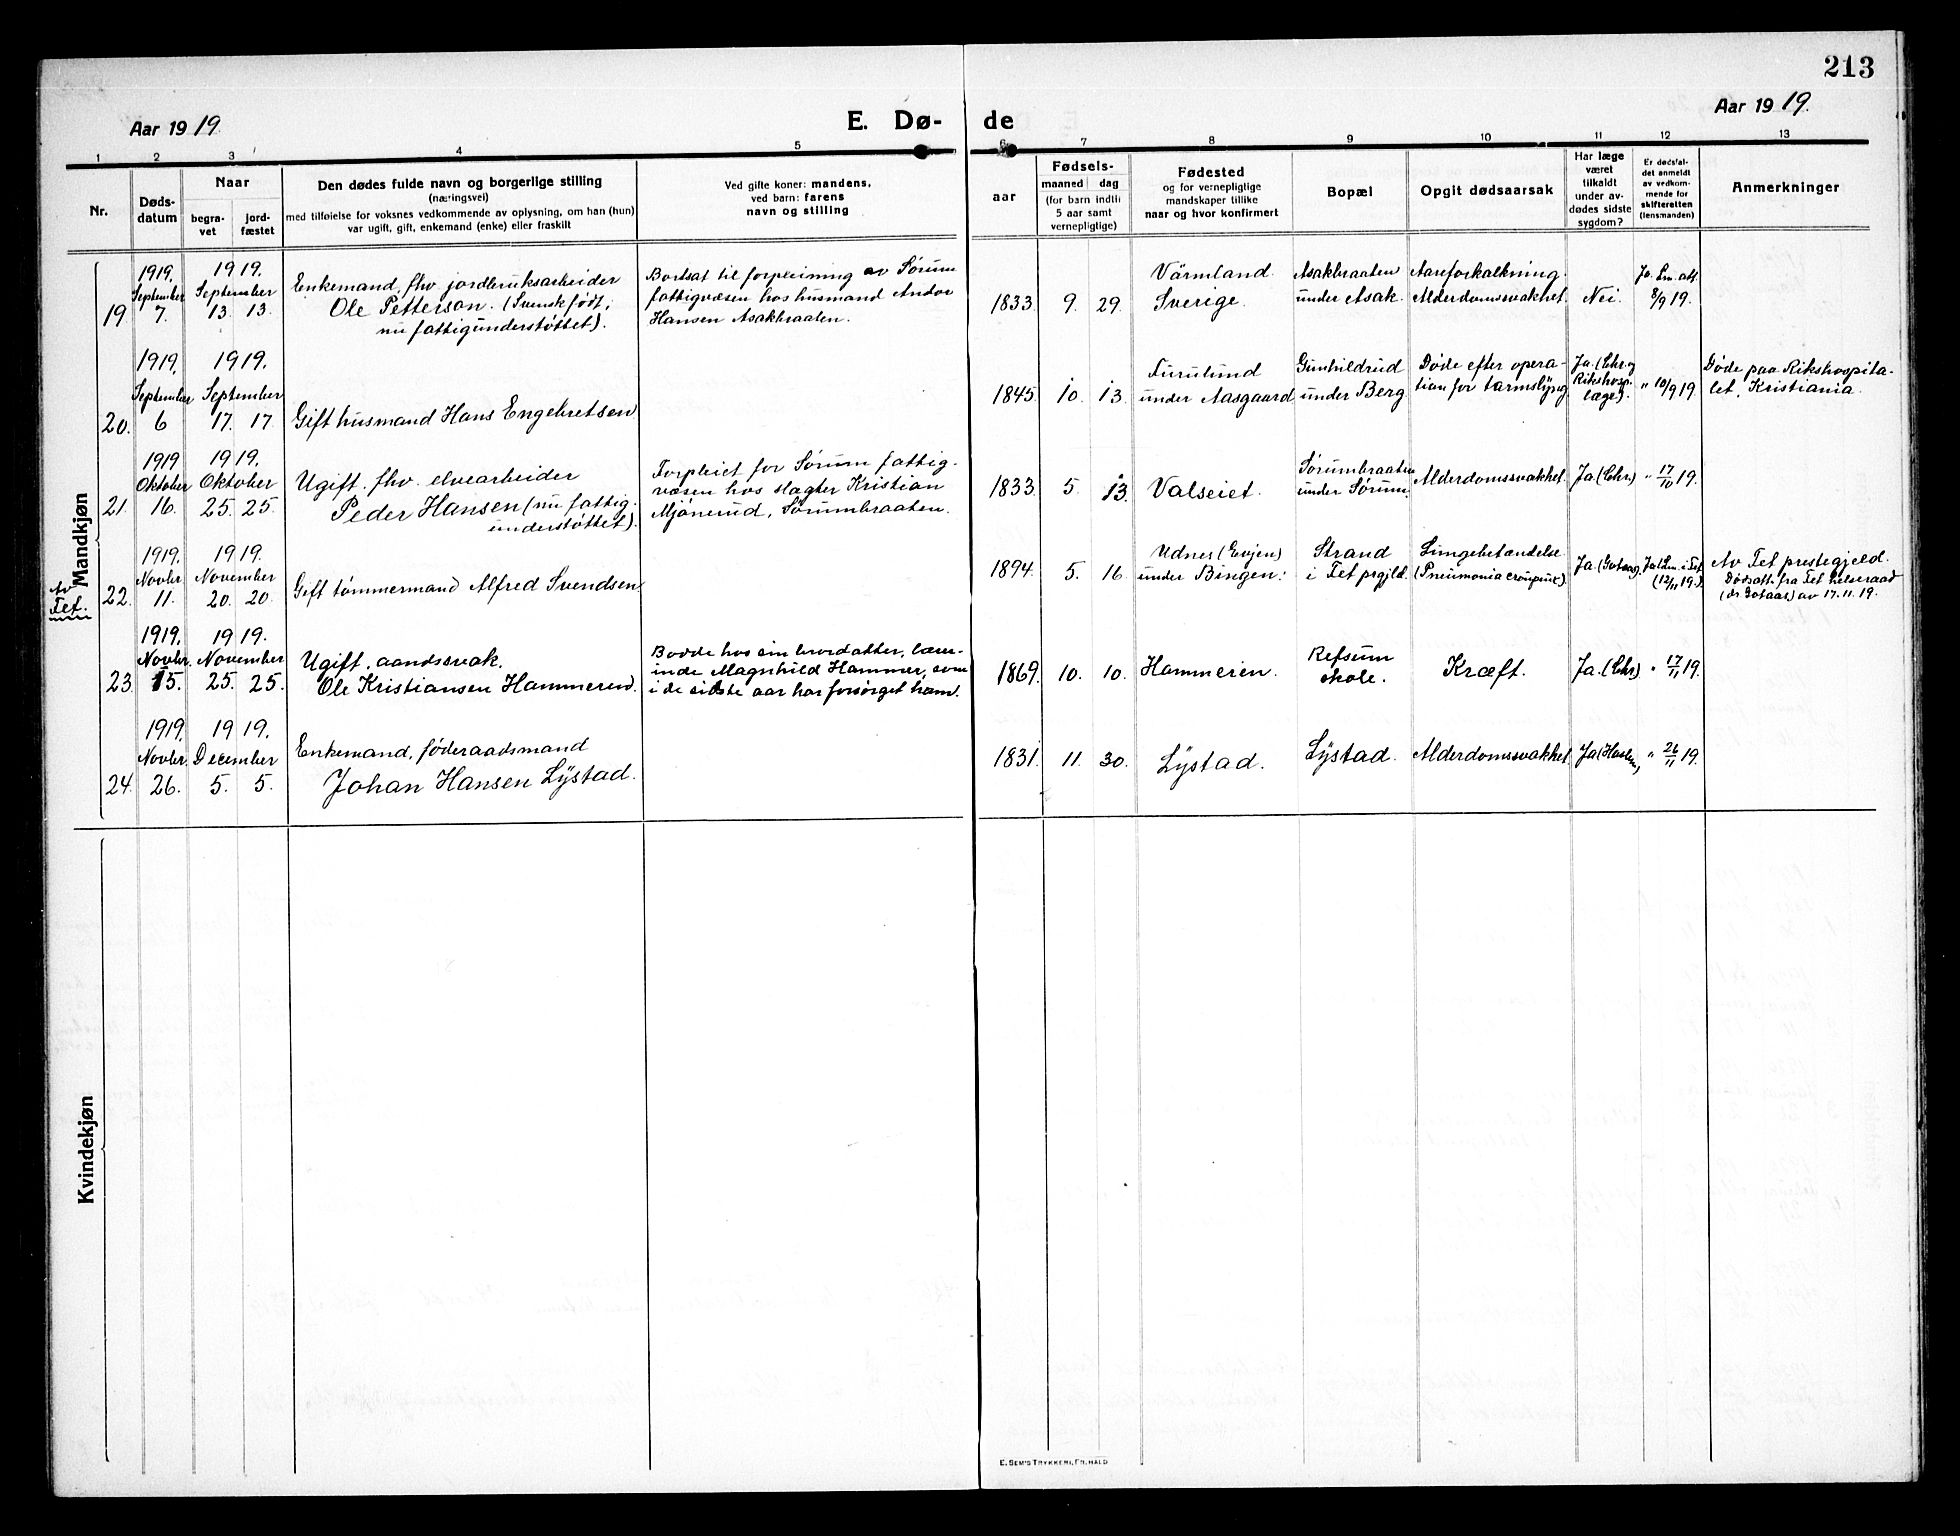 213
Aar 1919.
E. Dø-
de
Aar 1919.
1 2 3 4 5 6 7 8 9 10 11 12 13
Nr.
Døds-
datum
Naar
begra-
vet
jord-
fæstet
Den dødes fulde navn og borgerlige stilling
(næringsvei)
med tilføielse for voksnes vedkommende av oplysning, om han (hun)
var ugift, gift, enkemand (enke) eller fraskilt
Ved gifte koner: mandens,
ved barn: farens
navn og stilling
Fødsels-
aar
maaned dag
(for barn indtil
5 aar samt
vernepligtige)
Fødested
og for vernepligtige
mandskaper tillike
naar og hvor konfirmert
Bopæl
Opgit dødsaarsak
Har læge
været
tilkaldt
under av-
dødes sidste
sygdom?
Er dødsfal-
det anmeldt
av vedkom-
mende for
skifteretten
(lensmanden)
Anmerkninger
Mandkjøn
19
1919.
September
7.
1919.
September
13. 13.
Enkemand, fhv. jordbruksarbeider
Ole Petterson. (Svensk født,
nu fattigunderstøttet).
Bortsat til forpleining av Sørum
fattigvæsen hos husmand Andor
Hansen Asakbraaten.
1833. 9. 29.
Värmland.
Sverige.
Asakbraaten
under Asak.
Aareforkalkning.
Alderdomssvakhet.
Nei.
Ja. Lm. att.
8/9 19.
20.
1919.
September
6
1919.
September
17. 17.
Gift husmand Hans Engebretsen
1845. 10. 13.
Furulund
under Aasgaard
Gunhildrud
under Berg
Døde efter opera-
tion for tarmslyng
Ja. (Chr. og
Rikshosp.
læge).
" 10/9 19.
Døde paa Rikshospita-
let, Kristiania.
21.
1919
Oktober
16.
1919.
Oktober
25. 25.
Ugift, fhv. elvearbeider
Peder Hansen (nu fattig-
understøttet).
Forpleiet for Sørum fattig-
væsen hos slagter Kristian
Mjønerud, Sørumbraaten.
1833. 5. 13.
Valseiet.
Sørumbraaten
under Sørum.
Alderdomssvakhet.
Ja (Chr.)
" 17/10 19.
Av
Fet.
22.
1919.
Novbr.
11.
1919.
November
20. 20.
Gift tømmermand Alfred Svendsen
1894. 5. 16.
Udnes (Evjen)
under Bingen.
Strand
i Fet prgjld.
Lungebetændelse
(Pneumonia crouposa).
Ja (Gotaas).
Ja Lm. i Fet
(12/11 19.)
Av Fet prestegjeld.
Dødsatt. fra Fet helseraad
(dr. Gotaas) av 17.11.19.
23.
1919.
Novbr.
15.
1919.
November
25. 25.
Ugift, aandssvak.
Ole Kristiansen Hammeren.
Bodde hos sin brordatter, lærer-
inde Magnhild Hammer, som
i de sidste aar har forsørget ham.
1869. 10. 10.
Hammeren.
Refsum
skole.
Kræft.
Ja. (Chr.)
" 17/11 19.
24.
1919.
Novbr.
26.
1919.
December
5. 5.
Enkemand, føderaadsmand
Johan Hansen Lystad.
1831. 11. 30.
Lystad.
Lystad.
Alderdomssvakhet.
Ja
" 26/11 19.
Kvindekjøn
E. SEM'S TRYKKERI, FR.HALD